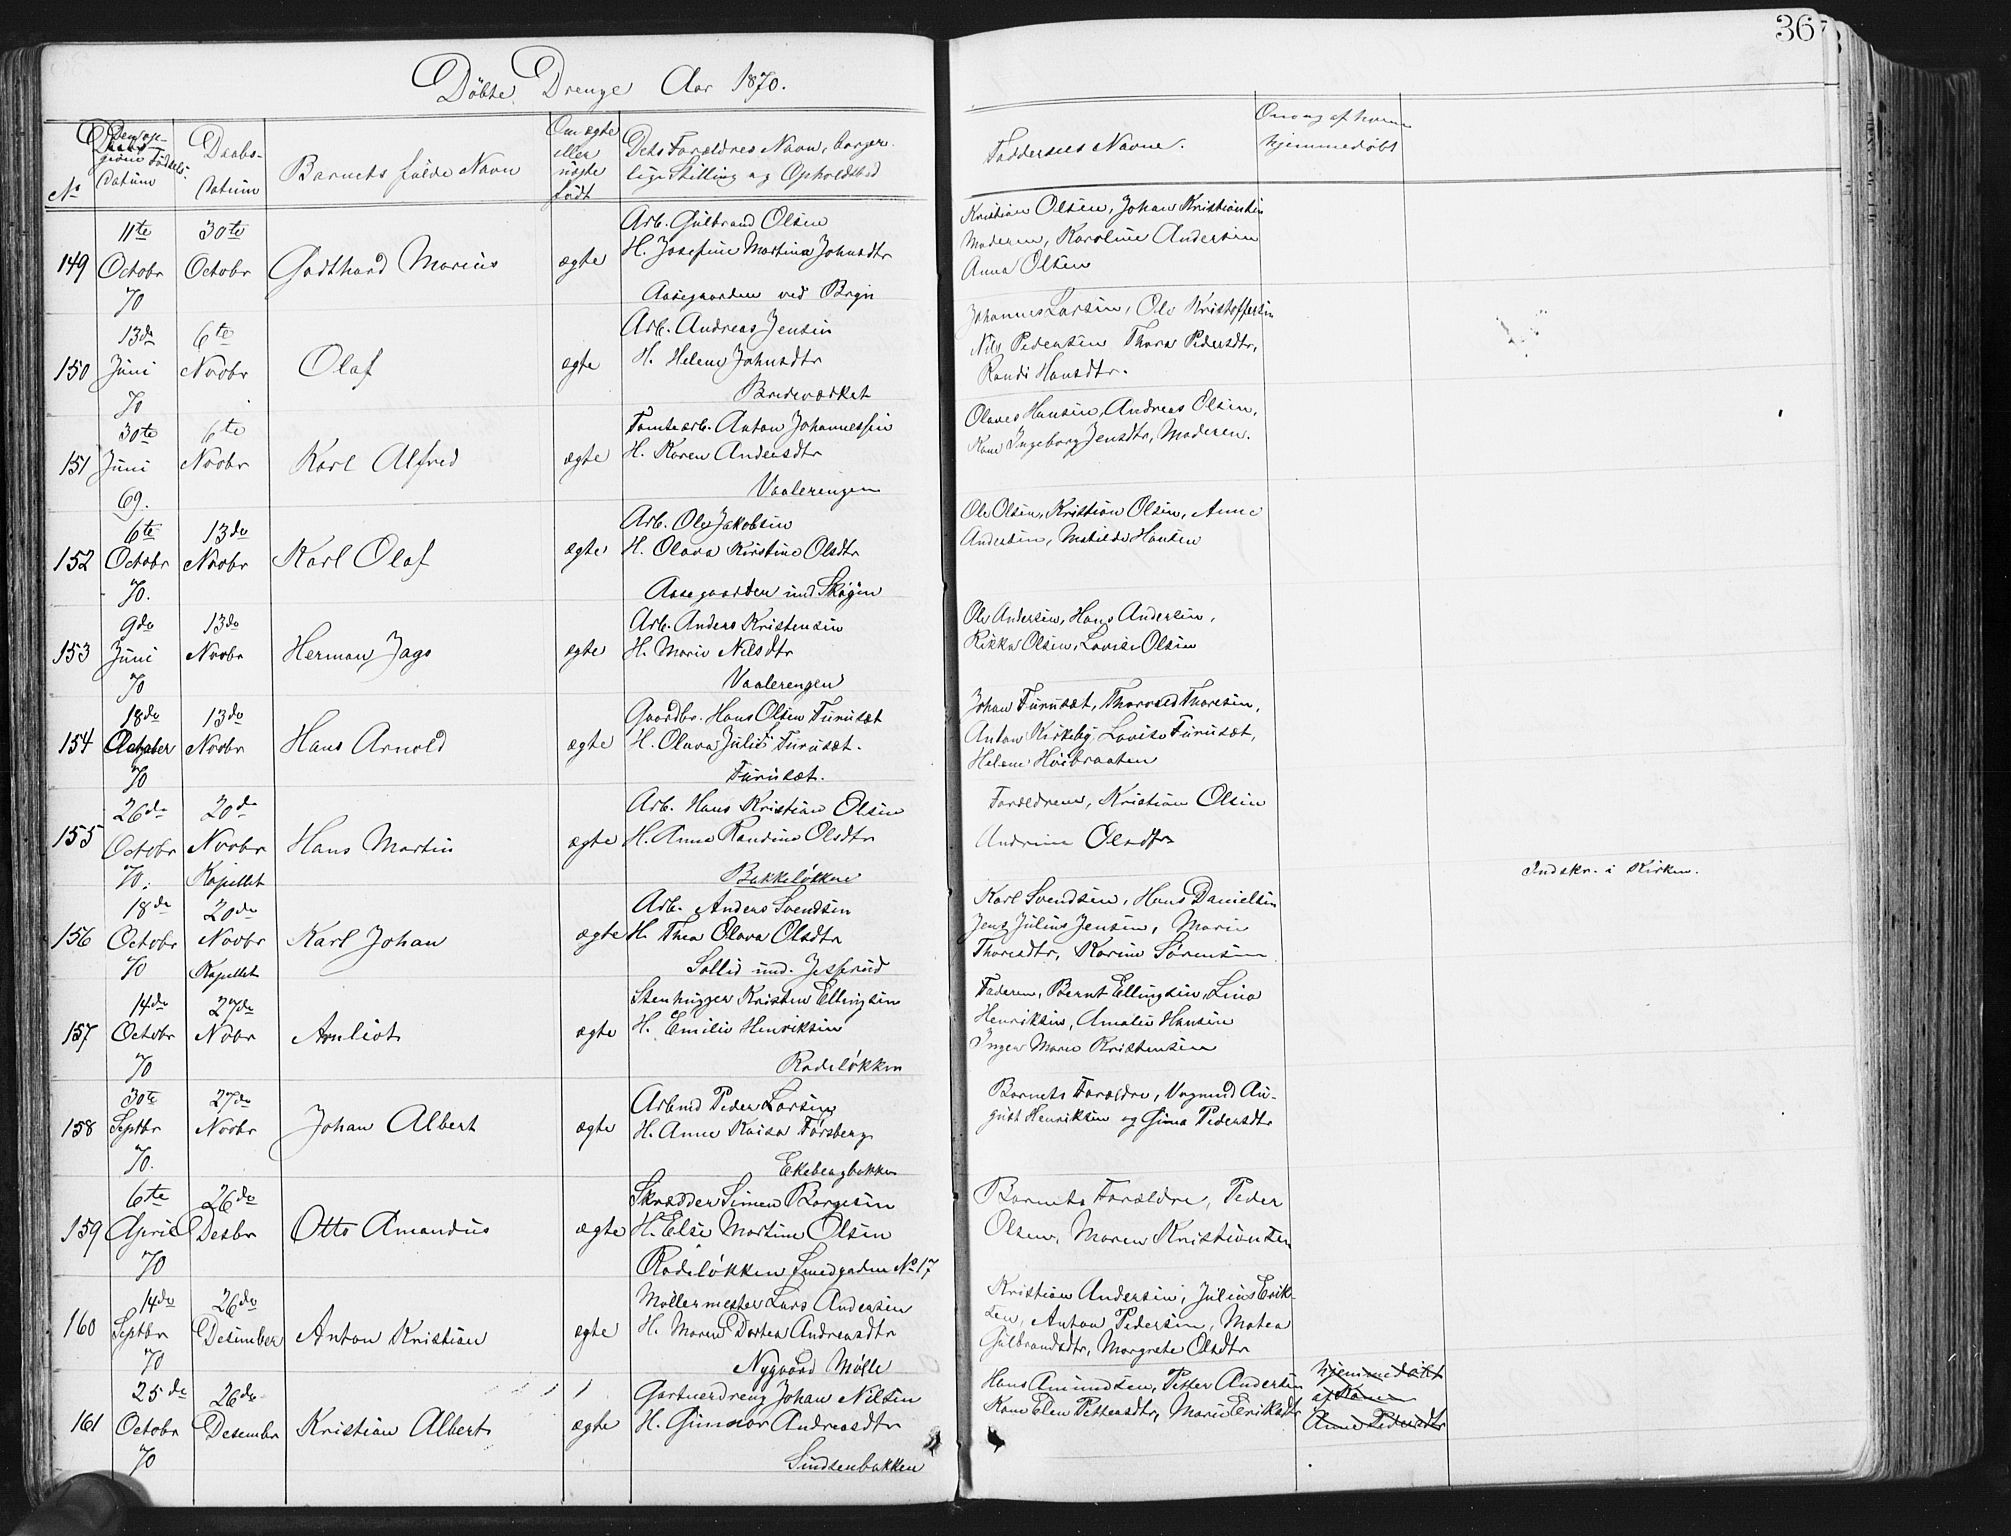 36
Döbte Drenge Aar 1870.
No
Den op-
givne Födsels-
Datum
Daabs-
Datum
Barnets fulde Navn
Om ægte
eller
uægte
født
Dets Forældres Navn, borger-
lige Stilling og Opholdsted
Faddernes Navne.
Om og af hvem
hjemmedøbt
149
11te
Octobr
70
30te
Octobr
Godthard Marius
ægte
Arb. Gulbrand Olsen
H. Josefine Martina Johnsdtr
Aasegaarden ved Bryn
Kristian Olsen, Johan Kristiansen
Moderen, Karoline Andersen
Anna Olsen
150
13de
Juni
70
6te
Novbr
Olaf
ægte
Arb. Andreas Jensen
H. Helene Johnsdtr
Bredeværket
Johannes Larsen, Ole Kristoffersen
Nils Pedersen Thora Pedersdtr,
Randi Hansdtr.
151
30te
Juni
69.
6te
Novbr
Karl Alfred
ægte
Tomtearb. Anton Johannessen
H. Karen Andersdtr
Vaalerengen
Olaves Hansen, Andreas Olsen,
Kone Ingeborg Jensdtr, Moderen.
152
6te
Octobr
70.
13de
Novbr
Karl Olaf
ægte
Arb. Ole Jakobsen
H. Olava Kirstine Olsdtr
Aasegaarden und Skøyen
Ole Olsen, Kristian Olsen, Anne
Andersen, Matilde Hansen
153
9de
Juni
70
13de
Novbr
Herman Jago
ægte
Arb. Anders Kristensen
H. Marie Nilsdtr
Vaalerengen
Ole Andersen, Hans Andersen,
Rikka Olsen, Lovise Olsen
154
18de
October
70
13de
Novbr
Hans Arnold
ægte
Gaardbr. Hans Olsen Furuset
H. Olava Julie Furuset.
Furuset.
Johan Furuset, Thorvald Thoresen,
Anton Kirkeby, Lovise Furuset,
Helene Høibraaten
155
26de
Octobr
70.
20de
Novbr
Kapellet
Hans Martin
ægte
Arb. Hans Kristian Olsen
H. Anne Randine Olsdtr
Bakkeløkken
Forældrene, Kristian Olsen
Andrine Olsdtr
Indskr. i Kirken.
156
18de
Octobr
70
20de
Novbr
Kapellet
Karl Johan
ægte
Arb. Anders Svendsen
H. Thea Olava Olsdtr
Sollid und. Jesserud
Karl Svendsen, Hans Danielsen
Jens Julius Jensen, Marie
Thoresdtr, Karine Sørensen
157
14de
Octobr
70
27de
Nobr
Arnliot
ægte
Stenhugger Kristen Ellingsen
H. Emilie Henriksen
Rodeløkken
Faderen, Bernt Ellingsen, Lina
Henriksen, Amalie Hansen
Inger Marie Kristensen
158
30te
Septbr
70.
27de
Novbr
Johan Albert
ægte
Arbmd Peder Larsen
H. Anne Kaisa Forsberg
Ekebergbakken
Barnets Forældre, Vogmnd Au-
gust Henriksen og Gina Pedersdtr
159
6te
April
70
26de
Desbr
Otto Amandus
ægte
Skrædder Simen Borgesen
H. Else Martine Olsen
Rodeløkken Smedgaden No 17
Barnets Forældre, Peder
Olsen, Maren Kristiansen
160
14de
Septbr
70
26de
Desember
Anton Kristian
ægte
Møllermester Lars Andersen
H. Maren Dortea Andreasdtr
Nygaard Mølle
Kristian Andersen, Julius Erik-
sen, Anton Pedersen, Matea
Gulbrandsdtr, Margrete Olsdtr
161
25de
Octobr
70
26de
Desembr
Kristian Albert
ægte
Gartnerdreng Johan Nilsen
H. Gunnor Andreasdtr
Sindsenbakken
Hans Amundsen, Petter Andersen
Kone Elen Pettersdtr, Marie Eriksdtr
hjemmedøbt
af Kone
Anne Pedersdtr